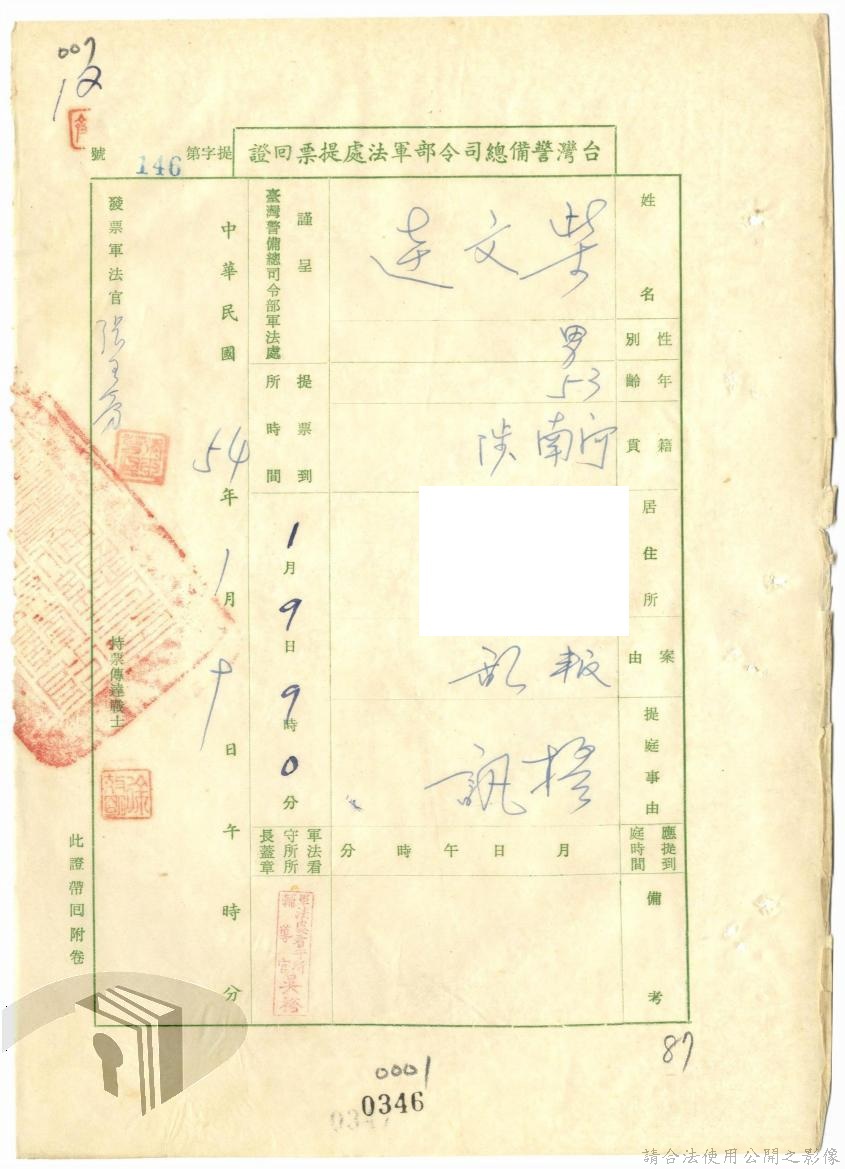 007
台灣警備總司令部軍法處提票回證
提字第146號
姓名
柴文達
性別
男
年齡
53
籍貫
河南陝
居住所
案由
叛亂
提庭事由
提訊
應提到庭時間
月日午時分
備考
謹呈
臺灣警備總司令部軍法處
提票到所時間
1月9日9時0分
軍法看守所所長蓋章
中華民國54年1月十日午時分
發票軍法官
持票傳達戰士
此證帶回附卷
87
0001
0346
0347
請合法使用公開之影像